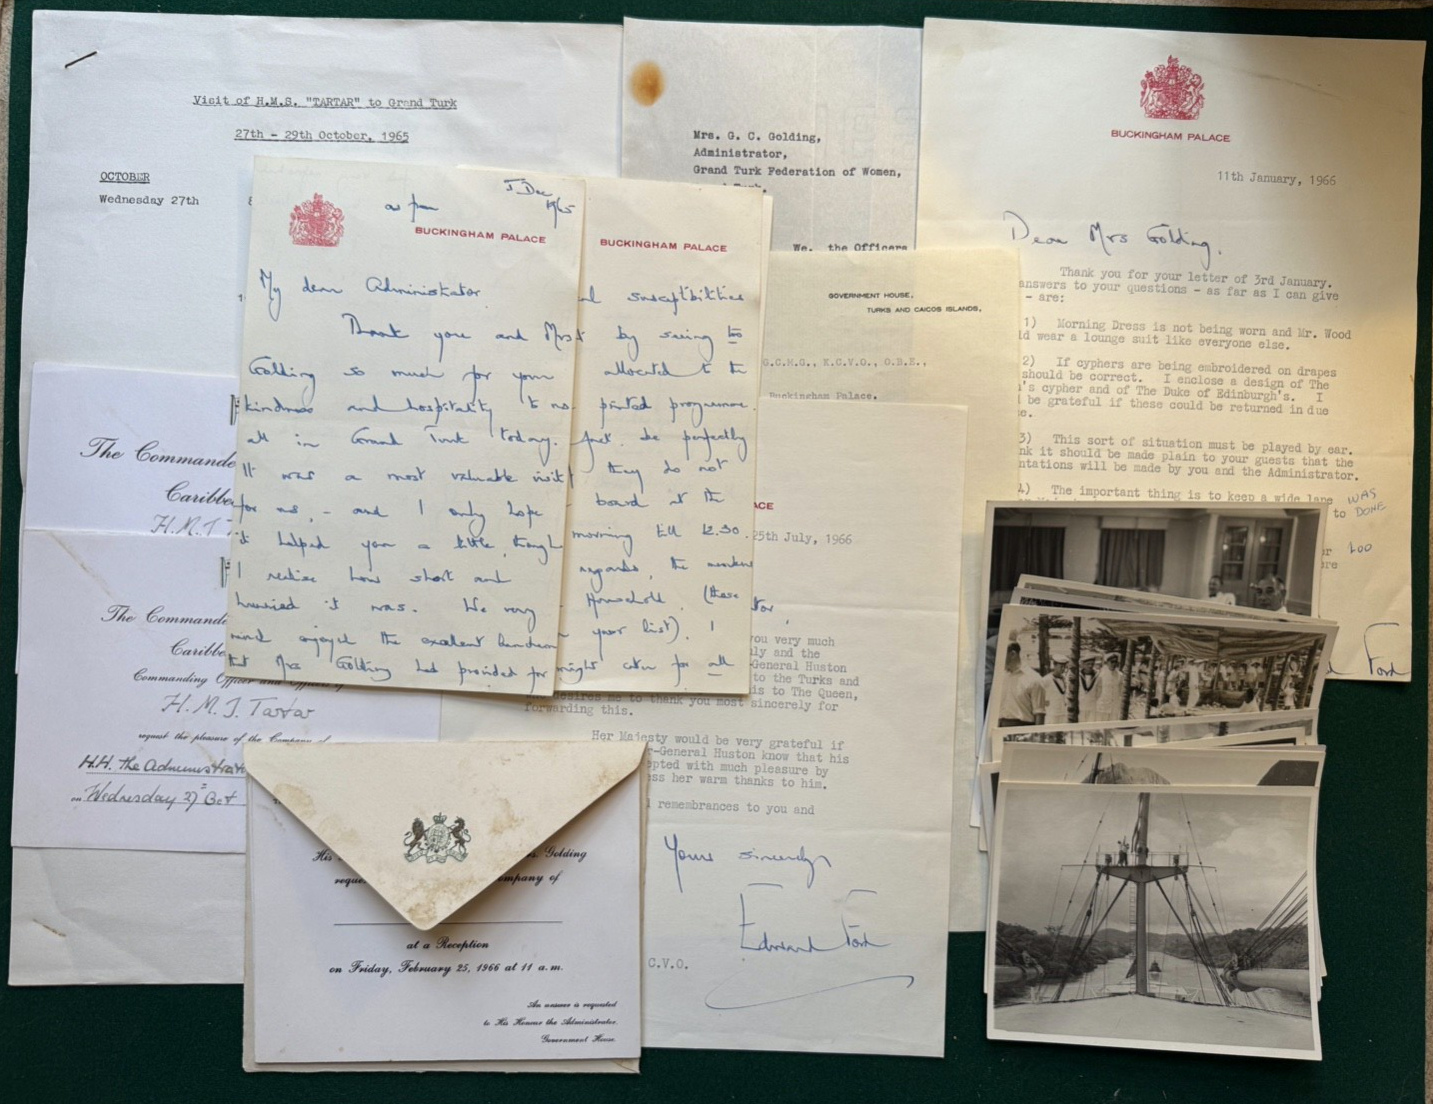 Visit of H.M.S. "TARTAR" to Grand Turk
27th - 29th October, 1965
OCTOBER
Wednesday 27th
Mrs. G. C. Golding,
Administrator,
Grand Turk Federation of Women,
We, the Officers
BUCKINGHAM PALACE
11th January, 1966
Dear Mrs Golding,
Thank you for your letter of 3rd January.
answers to your questions - as far as I can give
- are:
1) Morning Dress is not being worn and Mr. Wood
wear a lounge suit like everyone else.
2) If cyphers are being embroidered on drapes
should be correct. I enclose a design of The
's cypher and of The Duke of Edinburgh's. I
be grateful if these could be returned in due
3) This sort of situation must be played by ear.
it should be made plain to your guests that the
ntations will be made by you and the Administrator.
The important thing is to keep a wide lane
to
WAS
DONE
too
Ford
5 Dec
1965
as from
BUCKINGHAM PALACE
My dear Administrator
Thank you and Mrs
Golding so much for your
kindness and hospitality to us
all in Grand Turk today.
It was a most valuable visit
for us, - and I only hope
it helped you a little, though
I realise how short and
hurried it was. We very
much enjoyed the excellent luncheon
that Mrs Golding had provided for
BUCKINGHAM PALACE
susceptibilities
by seeing to
allocated to the
printed programme.
fact. be perfectly
they do not
board at the
morning till 12.30.
regards, the members
Household, (these
your list). I
might cater for all
GOVERNMENT HOUSE,
TURKS AND CAICOS ISLANDS,
G.C.M.G., K.C.V.O., O.B.E.,
Buckingham Palace.
ACE
25th July, 1966
tor
you very much
ly and the
General Huston
to the Turks and
is to The Queen,
desires me to thank you most sincerely for
forwarding this.
Her Majesty would be very grateful if
r-General Huston know that his
epted with much pleasure by
ess her warm thanks to him.
remembrances to you and
Yours sincerely
Edward Ford
C.V.O.
The Commande
Caribbe
H.M.S
The Commandi
Caribbe
Commanding Officer and Officers of
H.M.S. Tartar
request the pleasure of the Company of
H.H. the Administrat
on Wednesday 27th Oct
His
s. Golding
reque
ompany of
at a Reception
on Friday, February 25, 1966 at 11 a.m.
An answer is requested
to His Honour the Administrator.
Government House.